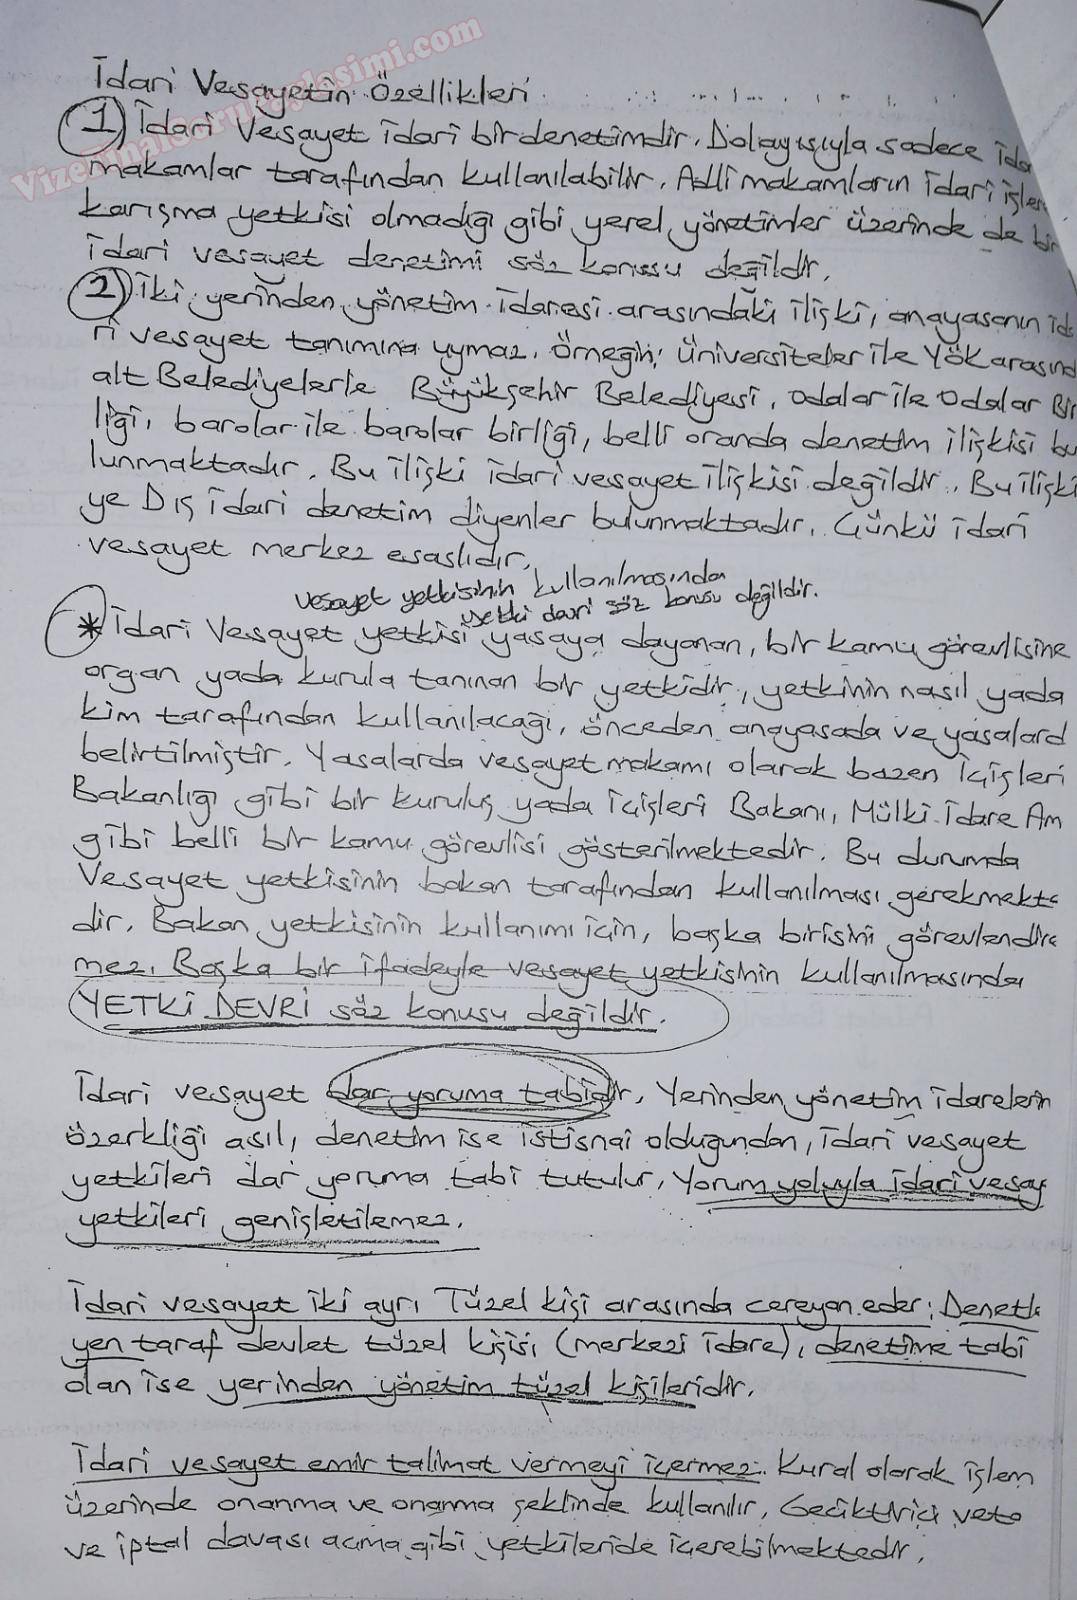 VizeFinalSoruPaylasimi.com
İdari Vesayetin Özellikleri
1) İdari Vesayet idari bir denetimdir. Dolayısıyla sadece ida
makamlar tarafından kullanılabilir. Adli makamların idari işler
karışma yetkisi olmadığı gibi yerel yönetimler üzerinde de bir
idari vesayet denetimi söz konusu değildir.
2) İki yerinden yönetim idaresi arasındaki ilişki, anayasanın ida
ri vesayet tanımına uymaz. Örneğin; Üniversiteler ile YÖK arasınd
alt Belediyelerle Büyükşehir Belediyesi, odalar ile Odalar Bir
liği, barolar ile barolar birliği, belli oranda denetim ilişkisi bu
lunmaktadır. Bu ilişki idari vesayet ilişkisi değildir. Bu ilişki
ye Dış idari denetim diyenler bulunmaktadır. Çünkü idari
vesayet merkez esaslıdır.
vesayet yetkisinin kullanılmasında
yetki devri söz konusu değildir.
* İdari Vesayet yetkisi yasaya dayanan, bir kamu görevlisine
organ yada kurula tanınan bir yetkidir, yetkinin nasıl yada
kim tarafından kullanılacağı, önceden anayasada ve yasalard
belirtilmiştir. Yasalarda vesayet makamı olarak bazen İçişleri
Bakanlığı gibi bir kuruluş yada İçişleri Bakanı, Mülki İdare Am
gibi belli bir kamu görevlisi gösterilmektedir. Bu durumda
Vesayet yetkisinin bakan tarafından kullanılması gerekmekte
dir. Bakan yetkisinin kullanımı için, başka birisini görevlendire
mez. Başka bir ifadeyle vesayet yetkisinin kullanılmasında
YETKİ DEVRİ söz konusu değildir.
İdari vesayet dar yoruma tabidir. Yerinden yönetim idarelerin
özerkliği asıl, denetim ise istisnai olduğundan, idari vesayet
yetkileri dar yoruma tabi tutulur. Yorum yoluyla idari vesay
yetkileri genişletilemez.
İdari vesayet iki ayrı Tüzel kişi arasında cereyan eder; Denetle
yen taraf devlet tüzel kişisi (merkezi idare), denetime tabi
olan ise yerinden yönetim tüzel kişileridir.
İdari vesayet emir talimat vermeyi içermez. Kural olarak işlem
üzerinde onanma ve onanma şeklinde kullanılır. Geciktirici veto
ve iptal davası açma gibi yetkileride içerebilmektedir.